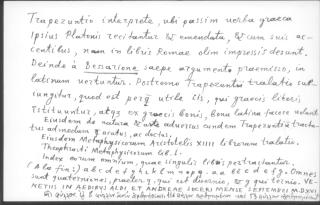 Trapezuntio interprete, ubi passim verba graeca
ipsius Platonis recitantur & emendata, & cum suis ac-
centibus, nam in libris Romae olim impressis desunt.
Deinde à Bessarione saepe argumento praemisso, in
latinum vertuntur. Postremo Trapezuntii tralatio sub-
iungitur, quod est perq̃ utile iis, qui graecis literis
restituuntur, atq; ex graecis bonis, bona latina facere volunt
Eiusdem de natura & arte adversus eundem Trapezuntiū tracta-
tus admodum acutus, ac doctus.
Eiusdem Metaphysicorum Aristotelis XIIII librorum tralatio.
Theophrasti Metaphysicorum Lib. I.
Index eorum omnium, quae singulis libris pertractantur.
(A la fin:) a b c d e f g h i k l m n o p q . aa bb cc dd ef g. Omnes
sunt quaterniones, praeter q, qui est duernio, & g qui ternio. VE-
NETIIS IN AEDIBVS ALDI ET ANDREAE SOCERI MENSE SEPTEMBRI M.DXVI